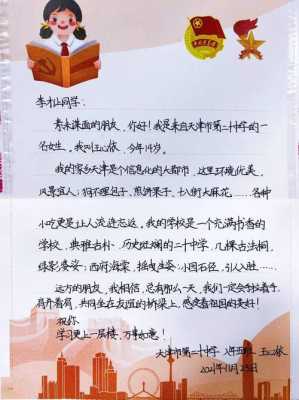 李杉同学:
素未谋面的朋友,你好!我是来自天津市第二十中学的一
名女生,我叫王心依,今年14岁。
我的家乡天津是个信息化的大都市,这里环境优美,
风景宜人;狗不理包子、煎饼果子、十八街大麻花……各种
小吃更是让人流连忘返。我的学校是一个充满书香的
学校,典雅古朴、历史斑斓的二十中学,几棵古法桐,
绿影婆娑;西府海棠,摇曳生姿;小园石径,引人入胜……
远方的朋友,我相信,总有那么一天,我们一定会手拉着手,
肩并着肩,共同坐在友谊的桥梁上,感受着祖国的美好!
祝你
学习更上一层楼,万事如意!
天津市第二十中学 八年五班 王心依
2021年11月23日